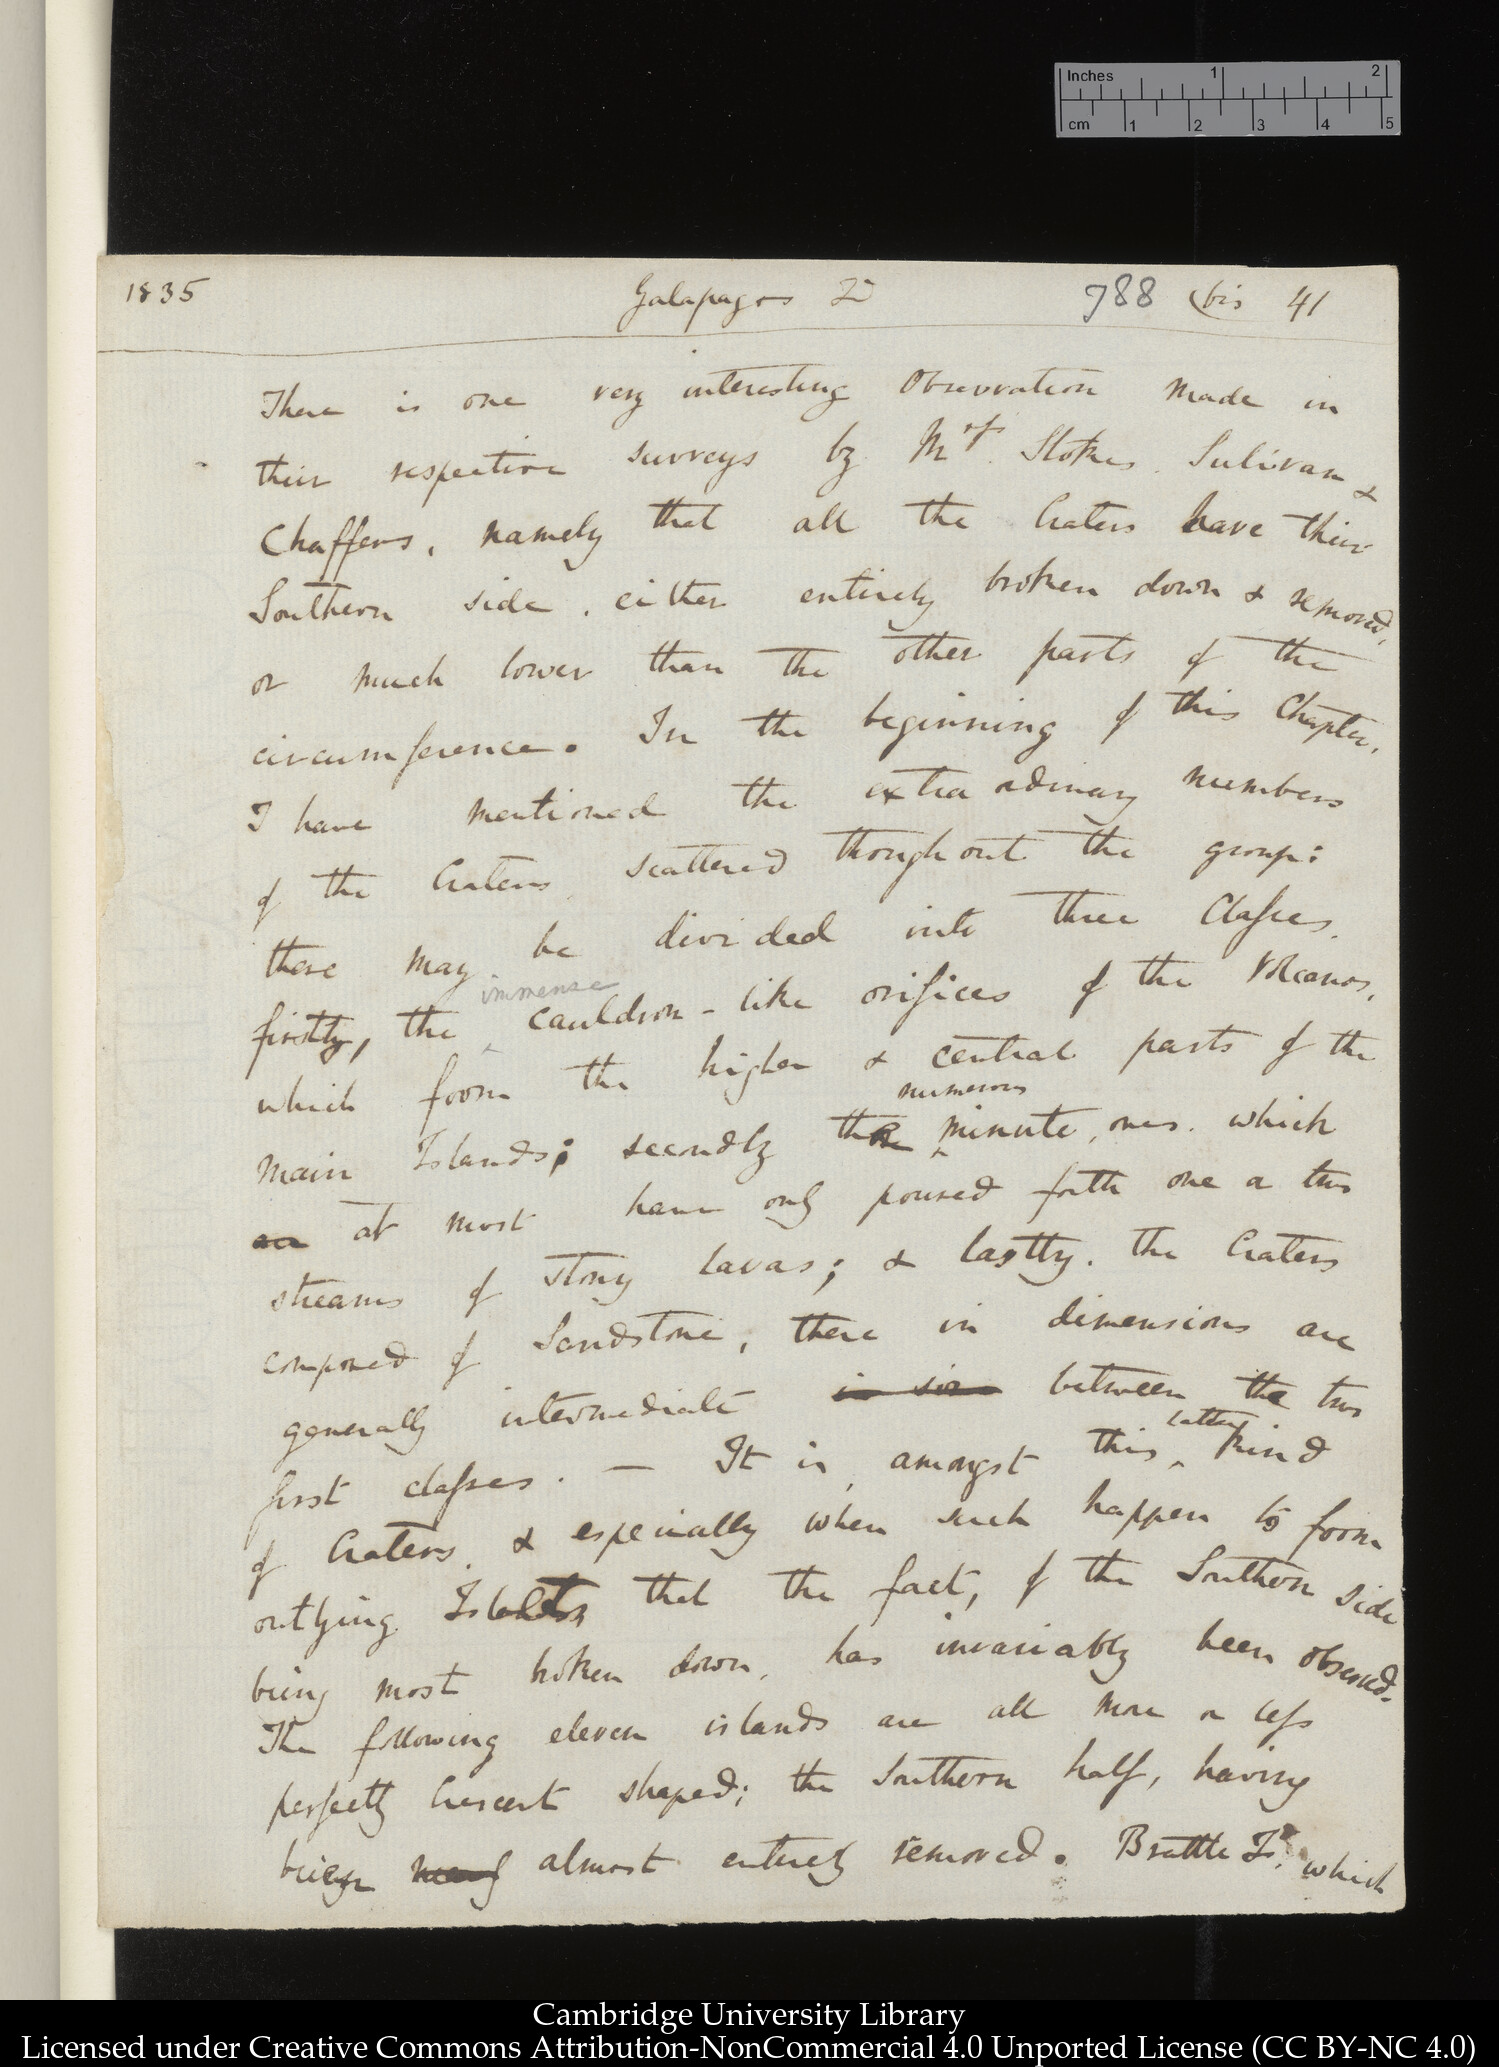 Inches 1 2
cm 1 2 3 4 5
1835 Galapagos Is 788 (bis 41
There is one very interesting observation made in
their respective surveys by Mrs. Stokes. Sulivan &
Chaffers, namely that all the Craters have their
Southern side, either entirely broken down & removed,
or much lower than the other parts of the
circumference. In the beginning of this Chapter,
I have mentioned the extraordinary numbers
of the Craters scattered thoughout the group:
these may be divided into three Classes.
immense
firstly, the cauldron-like orifices of the Volcanos,
which form the higher & central parts of the
numerous
main Islands; secondly the minute, ones. which
at most have only poured forth one or two
streams of stony lavas; & lastly. the Craters
composed of Sandstone, these in dimensions are
generally intermediate in size between the two
latter
first classes. — It is, amongst this kind
of Craters, & especially when such happen to form
outlying Islets that the fact, of the Southern side
being most broken down, has invariably been observed.
The following eleven islands are all more or less
perfectly Crescent shaped; the Southern half, having
been almost entirely removed. Brattle Isd. which
Cambridge University Library
Licensed under Creative Commons Attribution-NonCommercial 4.0 Unported License (CC BY-NC 4.0)